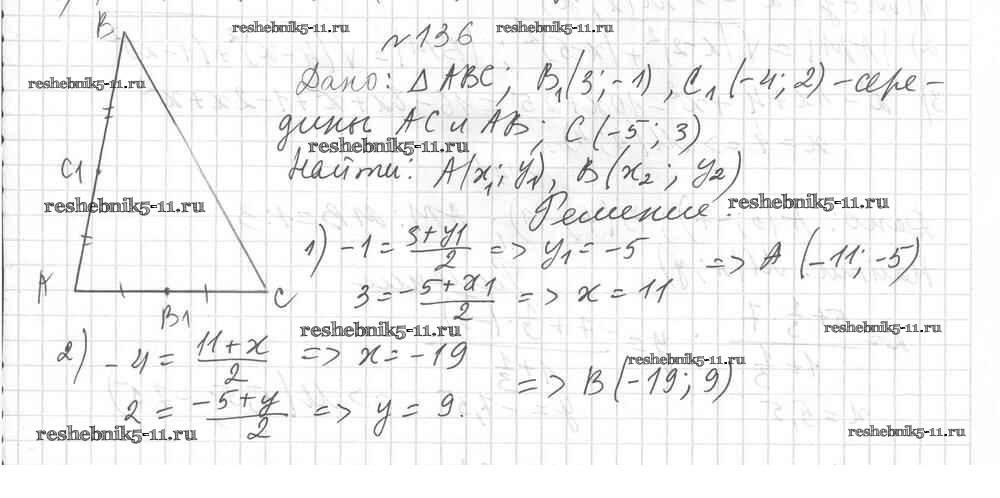 №136
Дано: △ ABC; B₁(3;-1), C₁(-4;2) - сере-
дины AC и AB; C(-5;3)
Найти: A(x₁; y₁), B(x₂; y₂)
Решение:
1) -1 = (3+y₁)/2 => y₁ = -5
3 = (-5+x₁)/2 => x = 11
=> A (-11;-5)
2) -4 = (11+x)/2 => x = -19
2 = (-5+y)/2 => y = 9.
=> B (-19; 9)
B
C1
A
B1
C
reshebnik5-11.ru
reshebnik5-11.ru
reshebnik5-11.ru
reshebnik5-11.ru
reshebnik5-11.ru
reshebnik5-11.ru
reshebnik5-11.ru
reshebnik5-11.ru
reshebnik5-11.ru
reshebnik5-11.ru
reshebnik5-11.ru